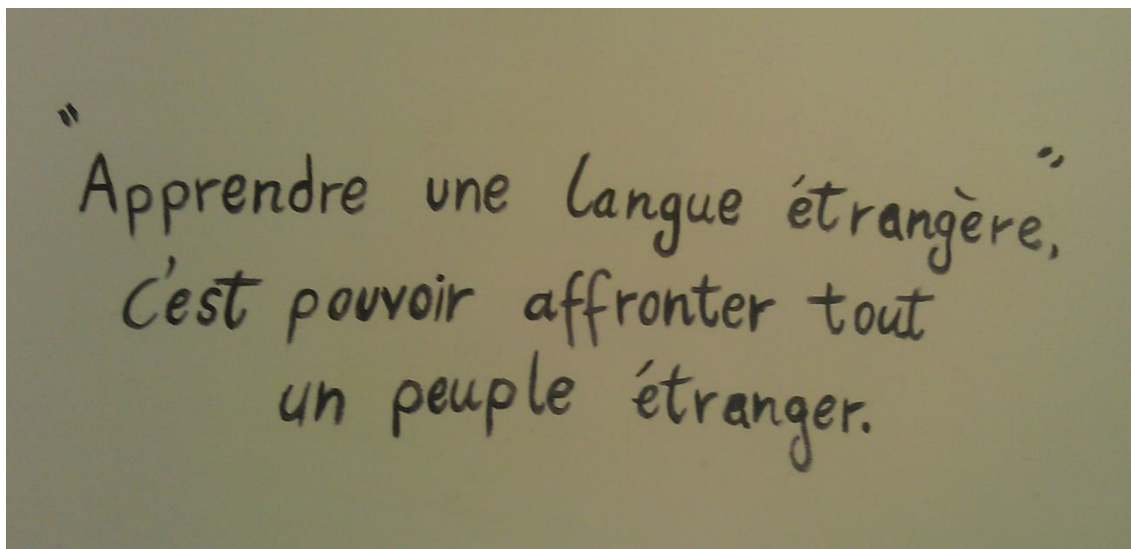 "Apprendre une langue étrangère,"
c'est pouvoir affronter tout
un peuple étranger.